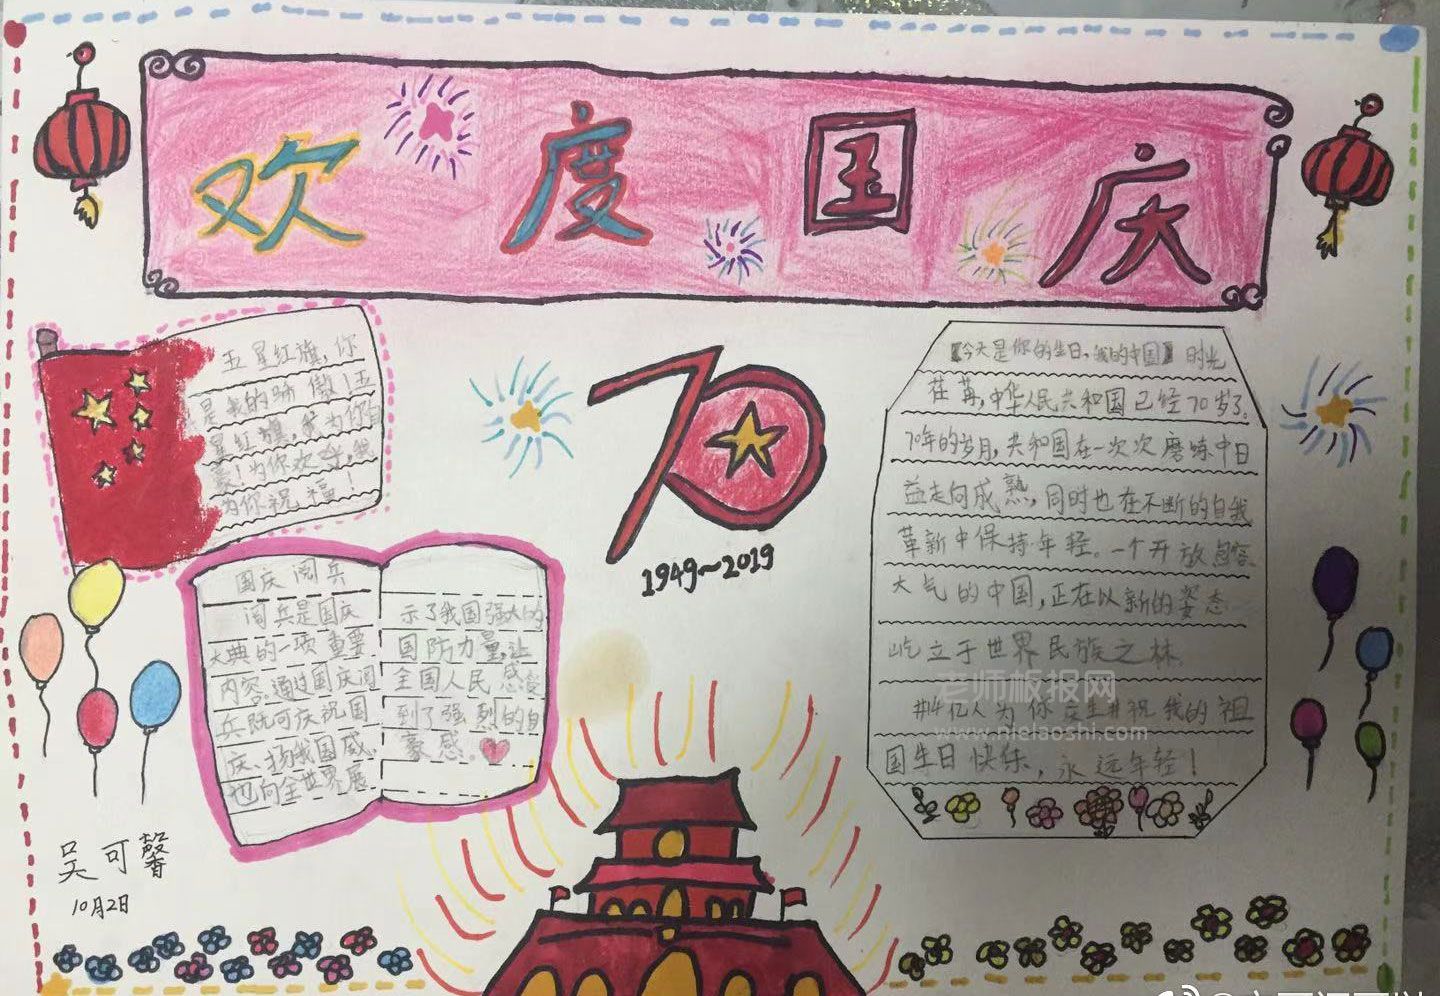 欢度国庆
五星红旗，你
是我的骄傲！五
星红旗，我为你自
豪！为你欢呼，我
为你祝福！
70
1949~2019
国庆阅兵
阅兵是国庆
大典的一项重要
内容。通过国庆阅
兵既可庆祝国
庆、扬我国威、
也向全世界展
示了我国强大的
国防力量，让
全国人民感受
到了强烈的自
豪感。
【今天是你的生日，我的中国】时光
荏苒，中华人民共和国已经70岁了。
70年的岁月，共和国在一次次磨炼中日
益走向成熟，同时也在不断的自我
革新中保持年轻。一个开放包容
大气的中国，正在以新的姿态
屹立于世界民族之林
#14亿人为你庆生#祝我的祖
国生日快乐，永远年轻！
老师板报网
www.nielaoshi.com
吴可馨
10月2日